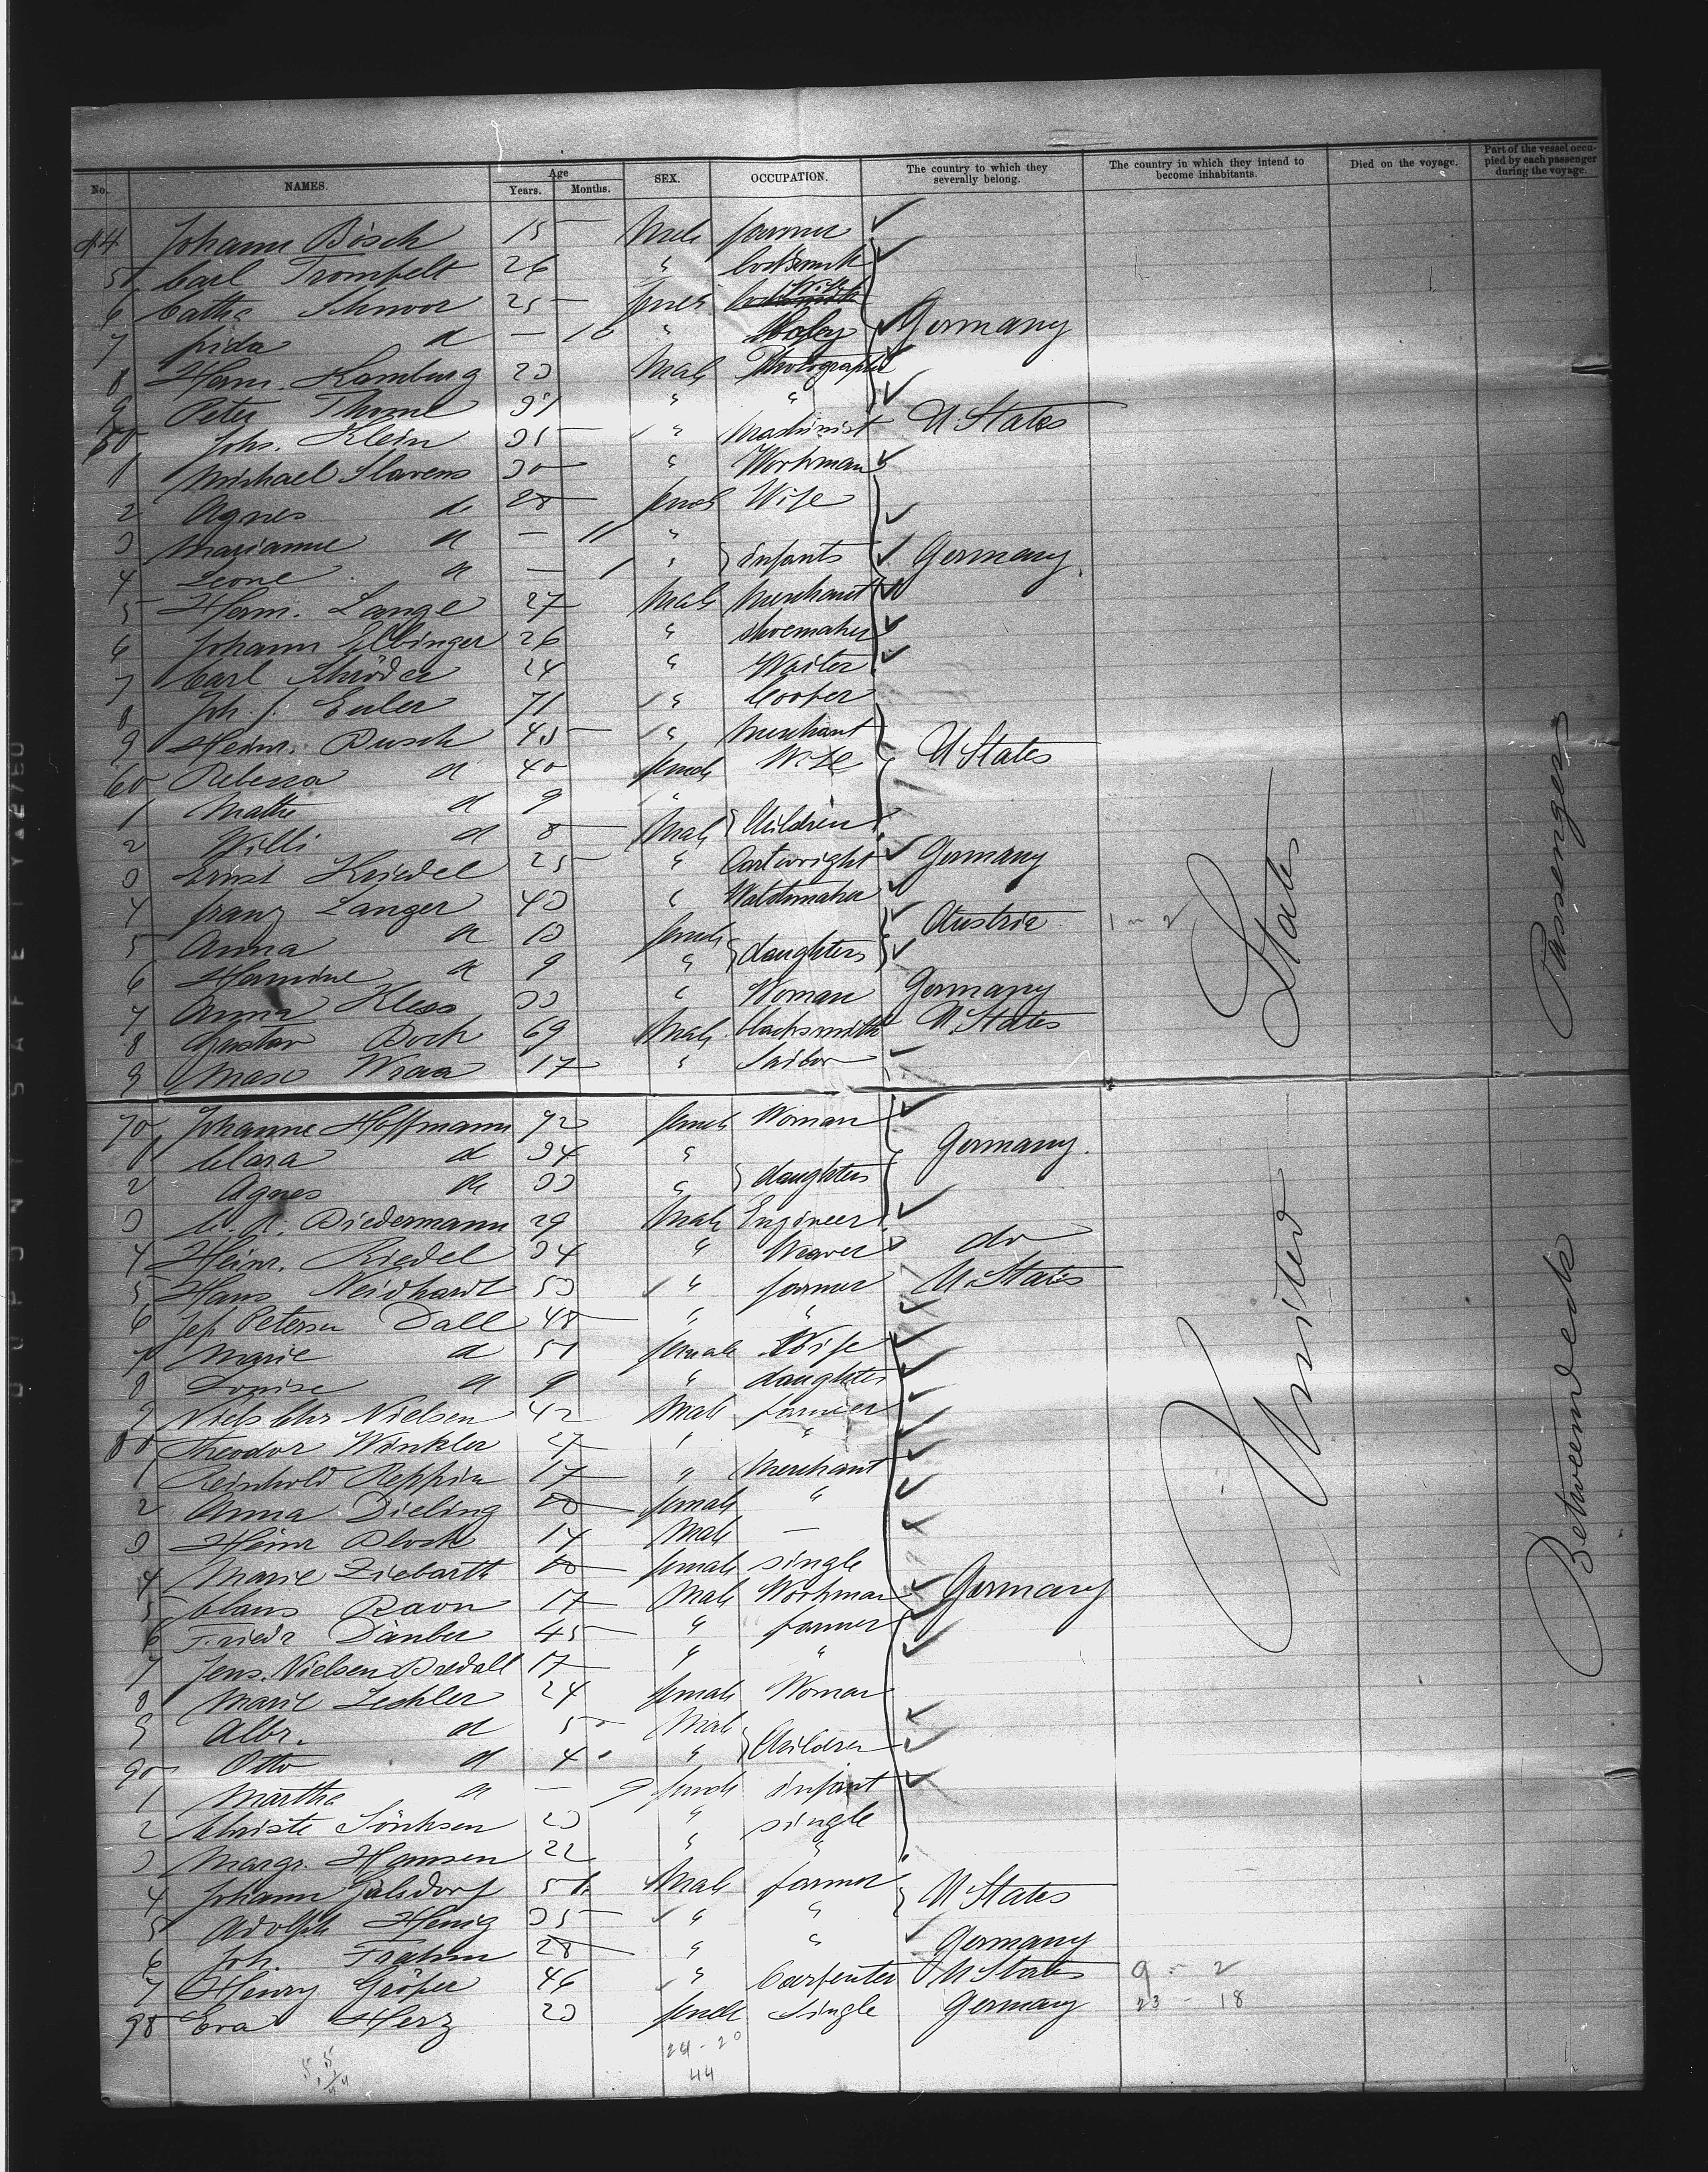 No. NAMES. Age Years. Months. SEX. OCCUPATION. The country to which they severally belong. The country in which they intend to become inhabitants. Died on the voyage. Part of the vessel occupied by each passenger during the voyage.
44 Johann Bösch 15 Male farmer
5 Carl Trompelt 26 " locksmith
6 Cathe Schnoor 25 female Wife
7 frida d — 10 " Germany
8 Herm. Hamburg 23 Male Photographer
9 Peter Thome 31 " "
50 Johs. Klein 35 " Mashinist U. States
1 Michael Slavens 30 " Workman
2 Agnes d 28 female Wife
3 Marianne d — 11 "
4 Leone d — 1 " infants Germany
5 Herm. Lange 27 Male Merchant
6 Johann Elbinger 26 " shoemaker
7 Carl Schröder 24 " Waiter
8 Joh. J. Euler 71 " Cooper
9 Heinr. Busch 45 " Merchant
60 Rebecca d 40 female Wife U States
1 Mathe d 9 "
2 Willi d 8 Male Children
3 Ernst Kriedel 25 " Cartwright Germany
4 franz Langer 43 " Watchmaker
5 Anna d 13 female Austria 1 - 2
6 Hermine d 9 " daughters
7 Anna Kless 33 " Woman Germany
8 Gustav Bock 69 Male blacksmith U. States
9 Max Wraa 17 " Sailor
70 Johanne Hoffmann 72 female Woman
1 Clara d 34 " Germany.
2 Agnes d 33 " daughters
3 C. A. Diedermann 29 Male Engineer
4 Heinr. Riedel 34 " Weaver do
5 Hans Neidhardt 53 " farmer U States
6 Jep Petersen Dall 48 " "
7 Marie d 51 female Wife
8 Louise d 9 " daughter
9 Niels Chr Nielsen 42 Male farmer
80 Theodor Winkler 27 " "
1 Reinhold Reppin 17 " Merchant
2 Anna Dieling female "
3 Heinr Block 14 Male —
4 Marie Ziebarth female single
5 Claus Ravn 17 Male Workman Germany
6 Friedr Dänber 45 " farmer
7 Jens. Nielsen Bredall 17 " "
8 Marie Lechler 24 female Woman
9 Albr. d 5 Male
90 Otto d 4 " Children
1 Martha d — 9 female infant
2 Christe Sönksen 23 " single
3 Margr. Hansen 22 " "
4 Johann 51 Male farmer U States
5 Adolph Henig 35 " "
6 Joh. Frahm 28 " " Germany
7 Henry Gröper 46 " Carpenter U States 9 - 2
98 Eva Herz 23 female Single Germany 23 - 18
24 - 20
44
United States
Betweendeck Passengers